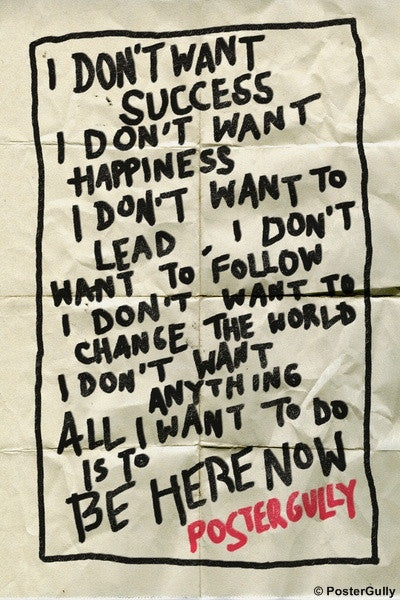 I DON'T WANT
SUCCESS
I DON'T WANT
HAPPINESS
I DON'T WANT TO
LEAD I DON'T
WANT TO FOLLOW
I DON'T WANT TO
CHANGE THE WORLD
I DON'T WANT
ANYTHING
ALL I WANT TO DO
IS TO
BE HERE NOW
POSTERGULLY
© PosterGully